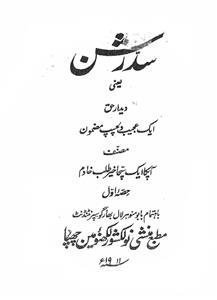 سدرشن
یعنی
دیدار حق
ایک عجیب و دلچسپ مضمون
مصنف
آپکا ایک سچا خیر طلب خادم
حصۂ اول
باہتمام بابو منوہر لال بھارگو سپرنٹنڈنٹ
مطبع منشی نولکشور لکھنؤ میں چھپا
۱۹۱۱ء